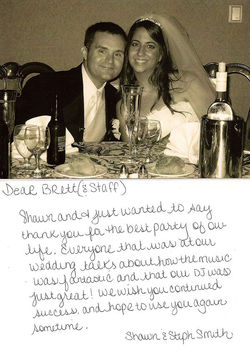 Dear Brett (& Staff)
Shawn and I just wanted to say
thank you for the best party of our
life. Everyone that was at our
wedding talks about how the music
was fantastic and that our DJ was
just great! We wish you continued
success, and hope to use you again
sometime.
Shawn & Steph Smith